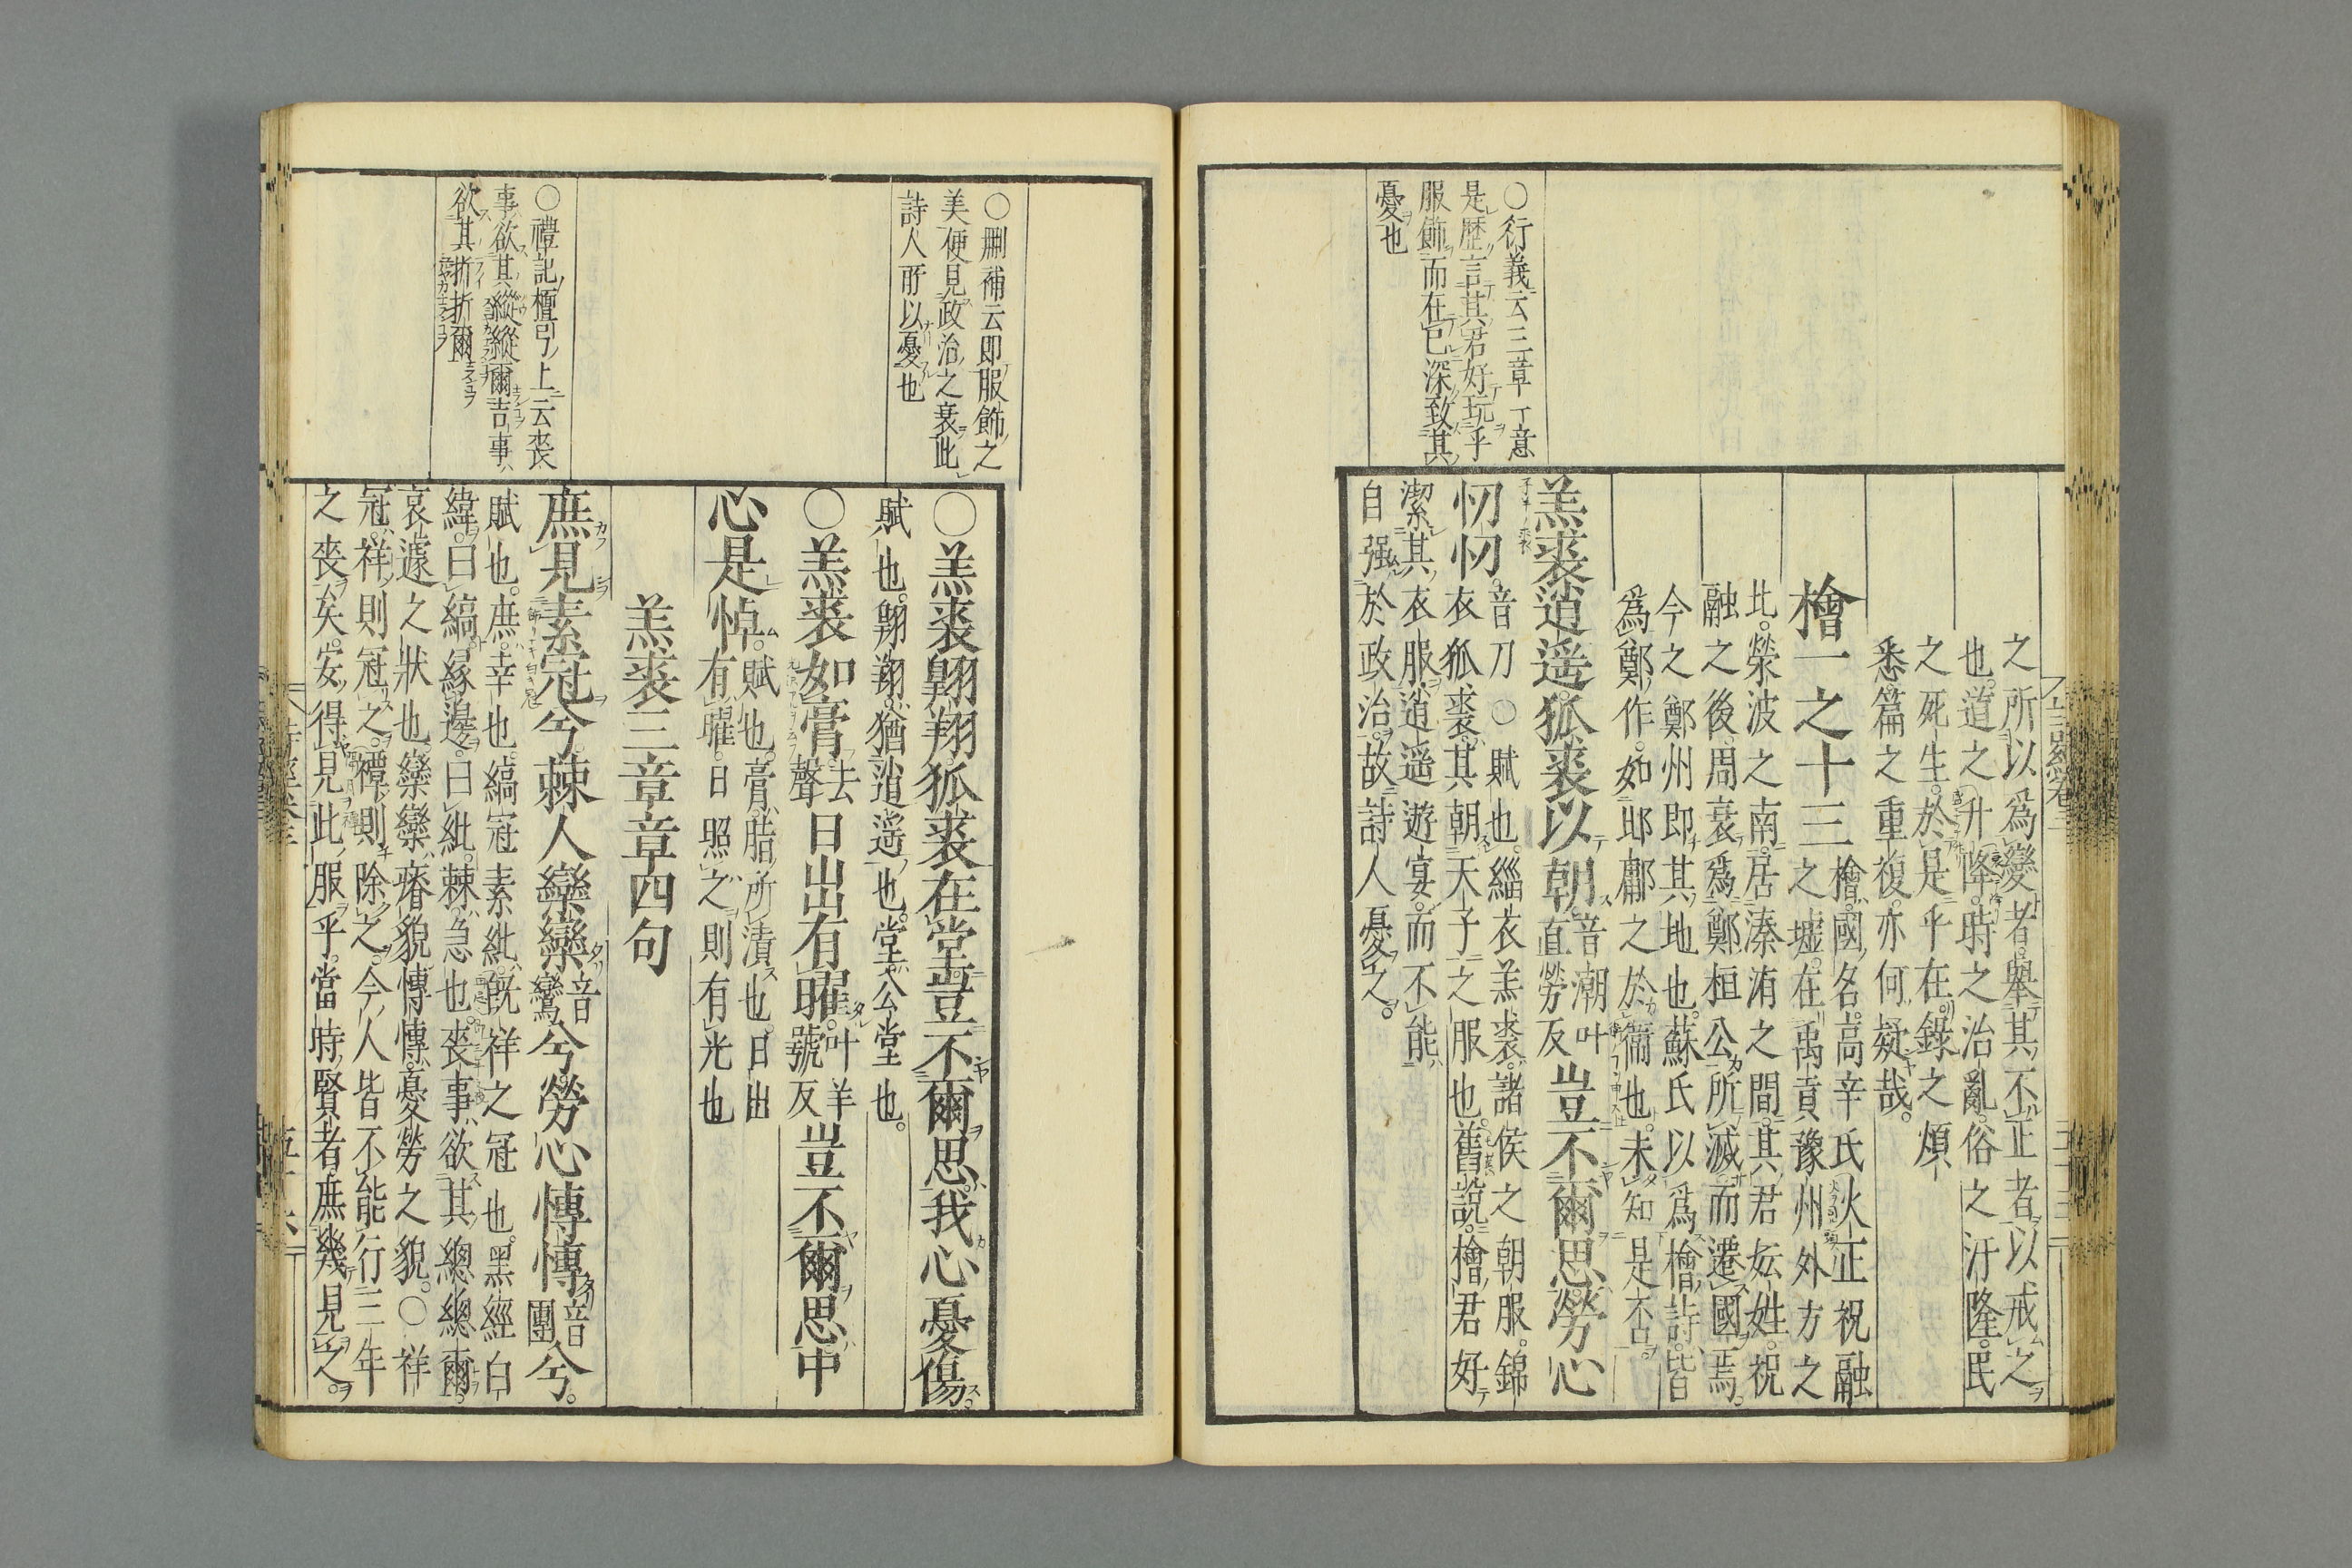 ○衍義云三章一意
是歷言其君好玩乎
服飾而在已深致其
憂也
之所以爲變者舉其不正者以戒之
也道之升降時之治亂俗之汙隆民
之死生於是乎在錄之煩
悉篇之重複亦何疑哉
檜一之十三檜國名高辛氏火正祝融
之墟在禹貢豫州外方之
北滎波之南居溱洧之間其君妘姓祝
融之後周衰爲鄭桓公所滅而遷國焉
今之鄭州即其地也蘇氏以爲檜詩皆
爲鄭作如邶鄘之於衞也未知是否
羔裘逍遙狐裘以朝音潮叶
直勞反豈不爾思勞心
忉忉音刀○賦也緇衣羔裘諸侯之朝服錦
衣狐裘其朝天子之服也舊說檜君好
潔其衣服逍遙遊宴而不能
自强於政治故詩人憂之
○刪補云即服飾之
美便見政治之衰此
詩人所以憂也
○禮記檀弓上云喪
事欲其縱縱爾吉事
欲其折折爾
○羔裘翺翔狐裘在堂豈不爾思我心憂傷
賦也翺翔猶逍遙也堂公堂也
○羔裘如膏去
聲日出有曜叶羊
號反豈不爾思中
心是悼賦也膏脂所漬也日出
有曜日照之則有光也
羔裘三章章四句
庶見素冠兮棘人欒欒音
鸞兮勞心慱慱音
團兮
賦也庶幸也縞冠素紕既祥之冠也黑經白
緯曰縞緣邊曰紕棘急也喪事欲其總總爾
哀遽之狀也欒欒瘠貌慱慱憂勞之貌○祥
冠祥則冠之禫則除之今人皆不能行三年
之喪矣安得見此服乎當時賢者庶幾見之